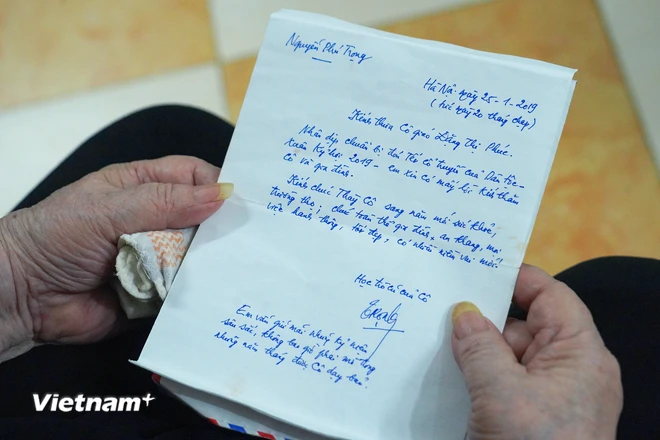 Nguyễn Phú Trọng
Hà Nội ngày 25-1-2019
(tức ngày 20 tháng chạp)
Kính thưa Cô giáo Đặng Thị Phúc.
Nhân dịp chuẩn bị đón Tết cổ truyền của Dân tộc -
Xuân Kỷ hợi 2019 - em xin có mấy lời kính thăm
Cô và gia đình.
Kính chúc Thầy Cô sang năm mới sức khỏe,
trường thọ; chúc toàn thể gia đình an khang, mọi
việc hanh thông, tốt đẹp, có nhiều niềm vui mới.
Học trò cũ của Cô
Trọng
Em vẫn giữ mãi những kỷ niệm
sâu sắc, không bao giờ phai mờ trong
những năm tháng được Cô dạy bảo.
Vietnam+